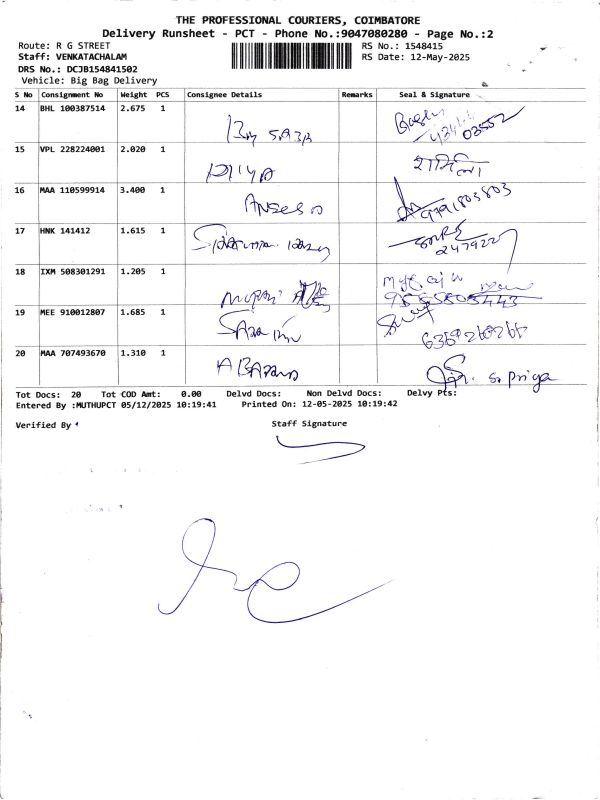 THE PROFESSIONAL COURIERS, COIMBATORE
Delivery Runsheet - PCT - Phone No.:9047080280 - Page No.:2
Route: R G STREET
RS No.: 1548415
Staff: VENKATACHALAM
RS Date: 12-May-2025
DRS No.: DCJB154841502
Vehicle: Big Bag Delivery
S No Consignment No Weight PCS Consignee Details Remarks Seal & Signature
14 BHL 100387514 2.675 1
15 VPL 228224001 2.020 1 PRIYA
16 MAA 110599914 3.400 1 9791803803
17 HNK 141412 1.615 1
18 IXM 508301291 1.205 1
19 MEE 910012807 1.685 1
20 MAA 707493670 1.310 1 S. Priya
Tot Docs: 20 Tot COD Amt: 0.00 Delvd Docs: Non Delvd Docs: Delvy Pts:
Entered By :MUTHUPCT 05/12/2025 10:19:41 Printed On: 12-05-2025 10:19:42
Verified By
Staff Signature